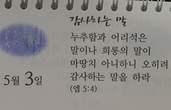 감사하는 말
누추함과 어리석은
말이나 희롱의 말이
마땅치 아니하니 오히려
감사하는 말을 하라
(엡 5:4)
5월 3일